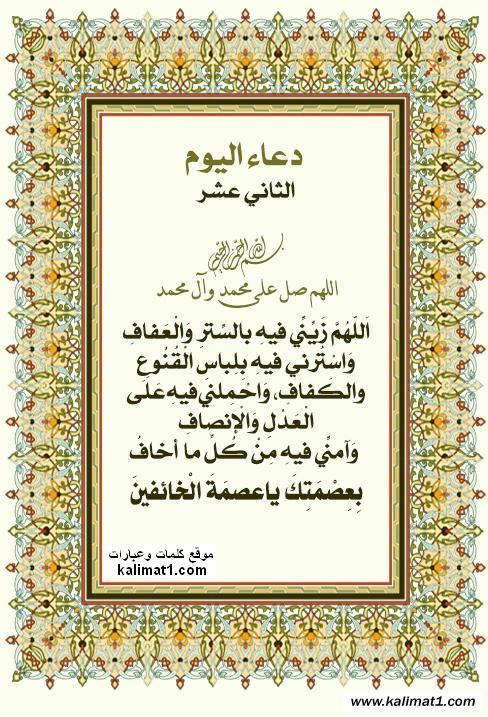 دعاء اليوم
الثاني عشر
بسم الله الرحمن الرحيم
اللهم صل على محمد وآل محمد
اَللّهُمَّ زَيِّنِّي فيهِ بالسِّترِ وَالْعَفافِ
وَاسْتُرني فيهِ بِلِباسِ الْقُنُوعِ
والكَفافِ، وَاحْمِلني فيهِ عَلَى
الْعَدْلِ وَالْإنصافِ
وَآمنِّي فيهِ مِنْ كُلِّ ما أخافُ
بِعِصْمَتِكَ ياعصمَةَ الْخائفينَ
موقع كلمات وعبارات
kalimat1.com
www.kalimat1.com